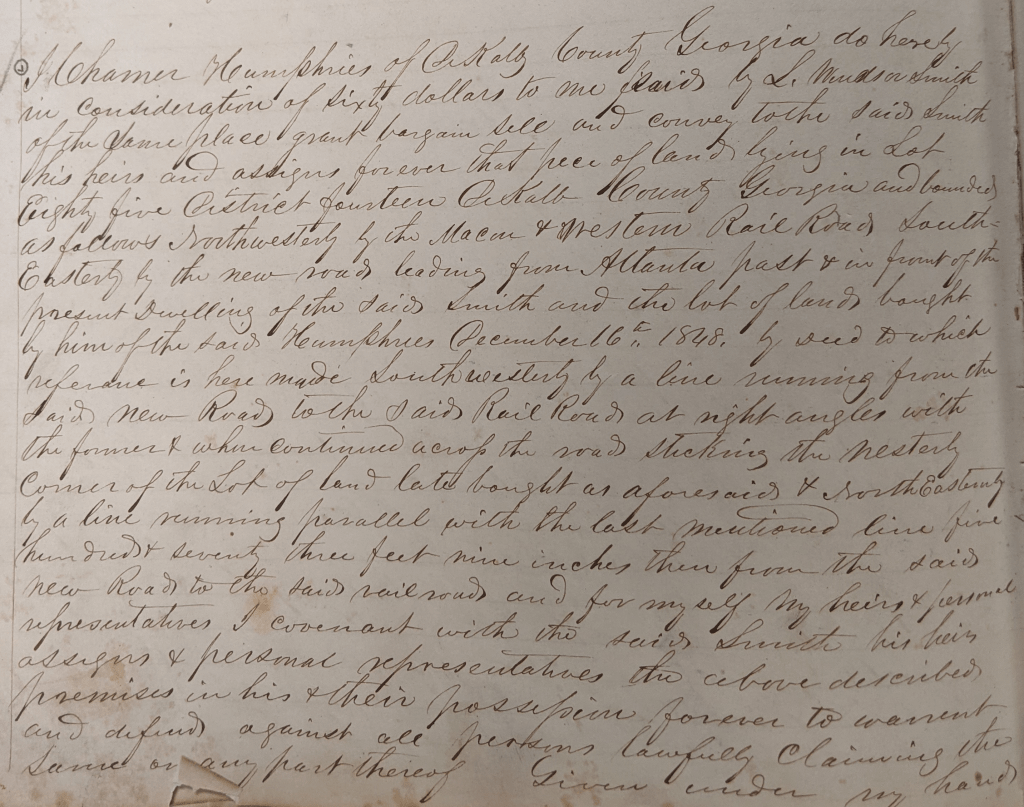 I Charner Humphries of DeKalb County Georgia do hereby
in consideration of sixty dollars to me paid by L. Windsor Smith
of the same place grant bargain sell and convey to the said Smith
his heirs and assigns forever that pece of land lying in Lot
Eighty five District fourteen DeKalb County Georgia and bounded
as follows Northwesterly by the Macon & Western Rail Road South=
Easterly by the new road leading from Atlanta past & in front of the
present Dwelling of the said Smith and the lot of land bought
by him of the said Humphries December 16th, 1848. by deed to which
referane is here made Southwesterly by a line running from the
said new Road to the said Rail Road at right angles with
the former & when continued across the road sticking the Westerly
corner of the Lot of land late bought as aforesaid & North Easterly
by a line running parallel with the last mentioned line five
hundred & seventy three feet nine inches then from the said
new Road to the said rail road and for myself my heirs & personal
representatives I covenant with the said Smith his heirs
assigns & personal representatives the above described
premises in his & their possession forever to warrent
and defend against all persons lawfully claiming the
same or any part thereof Given under my hand